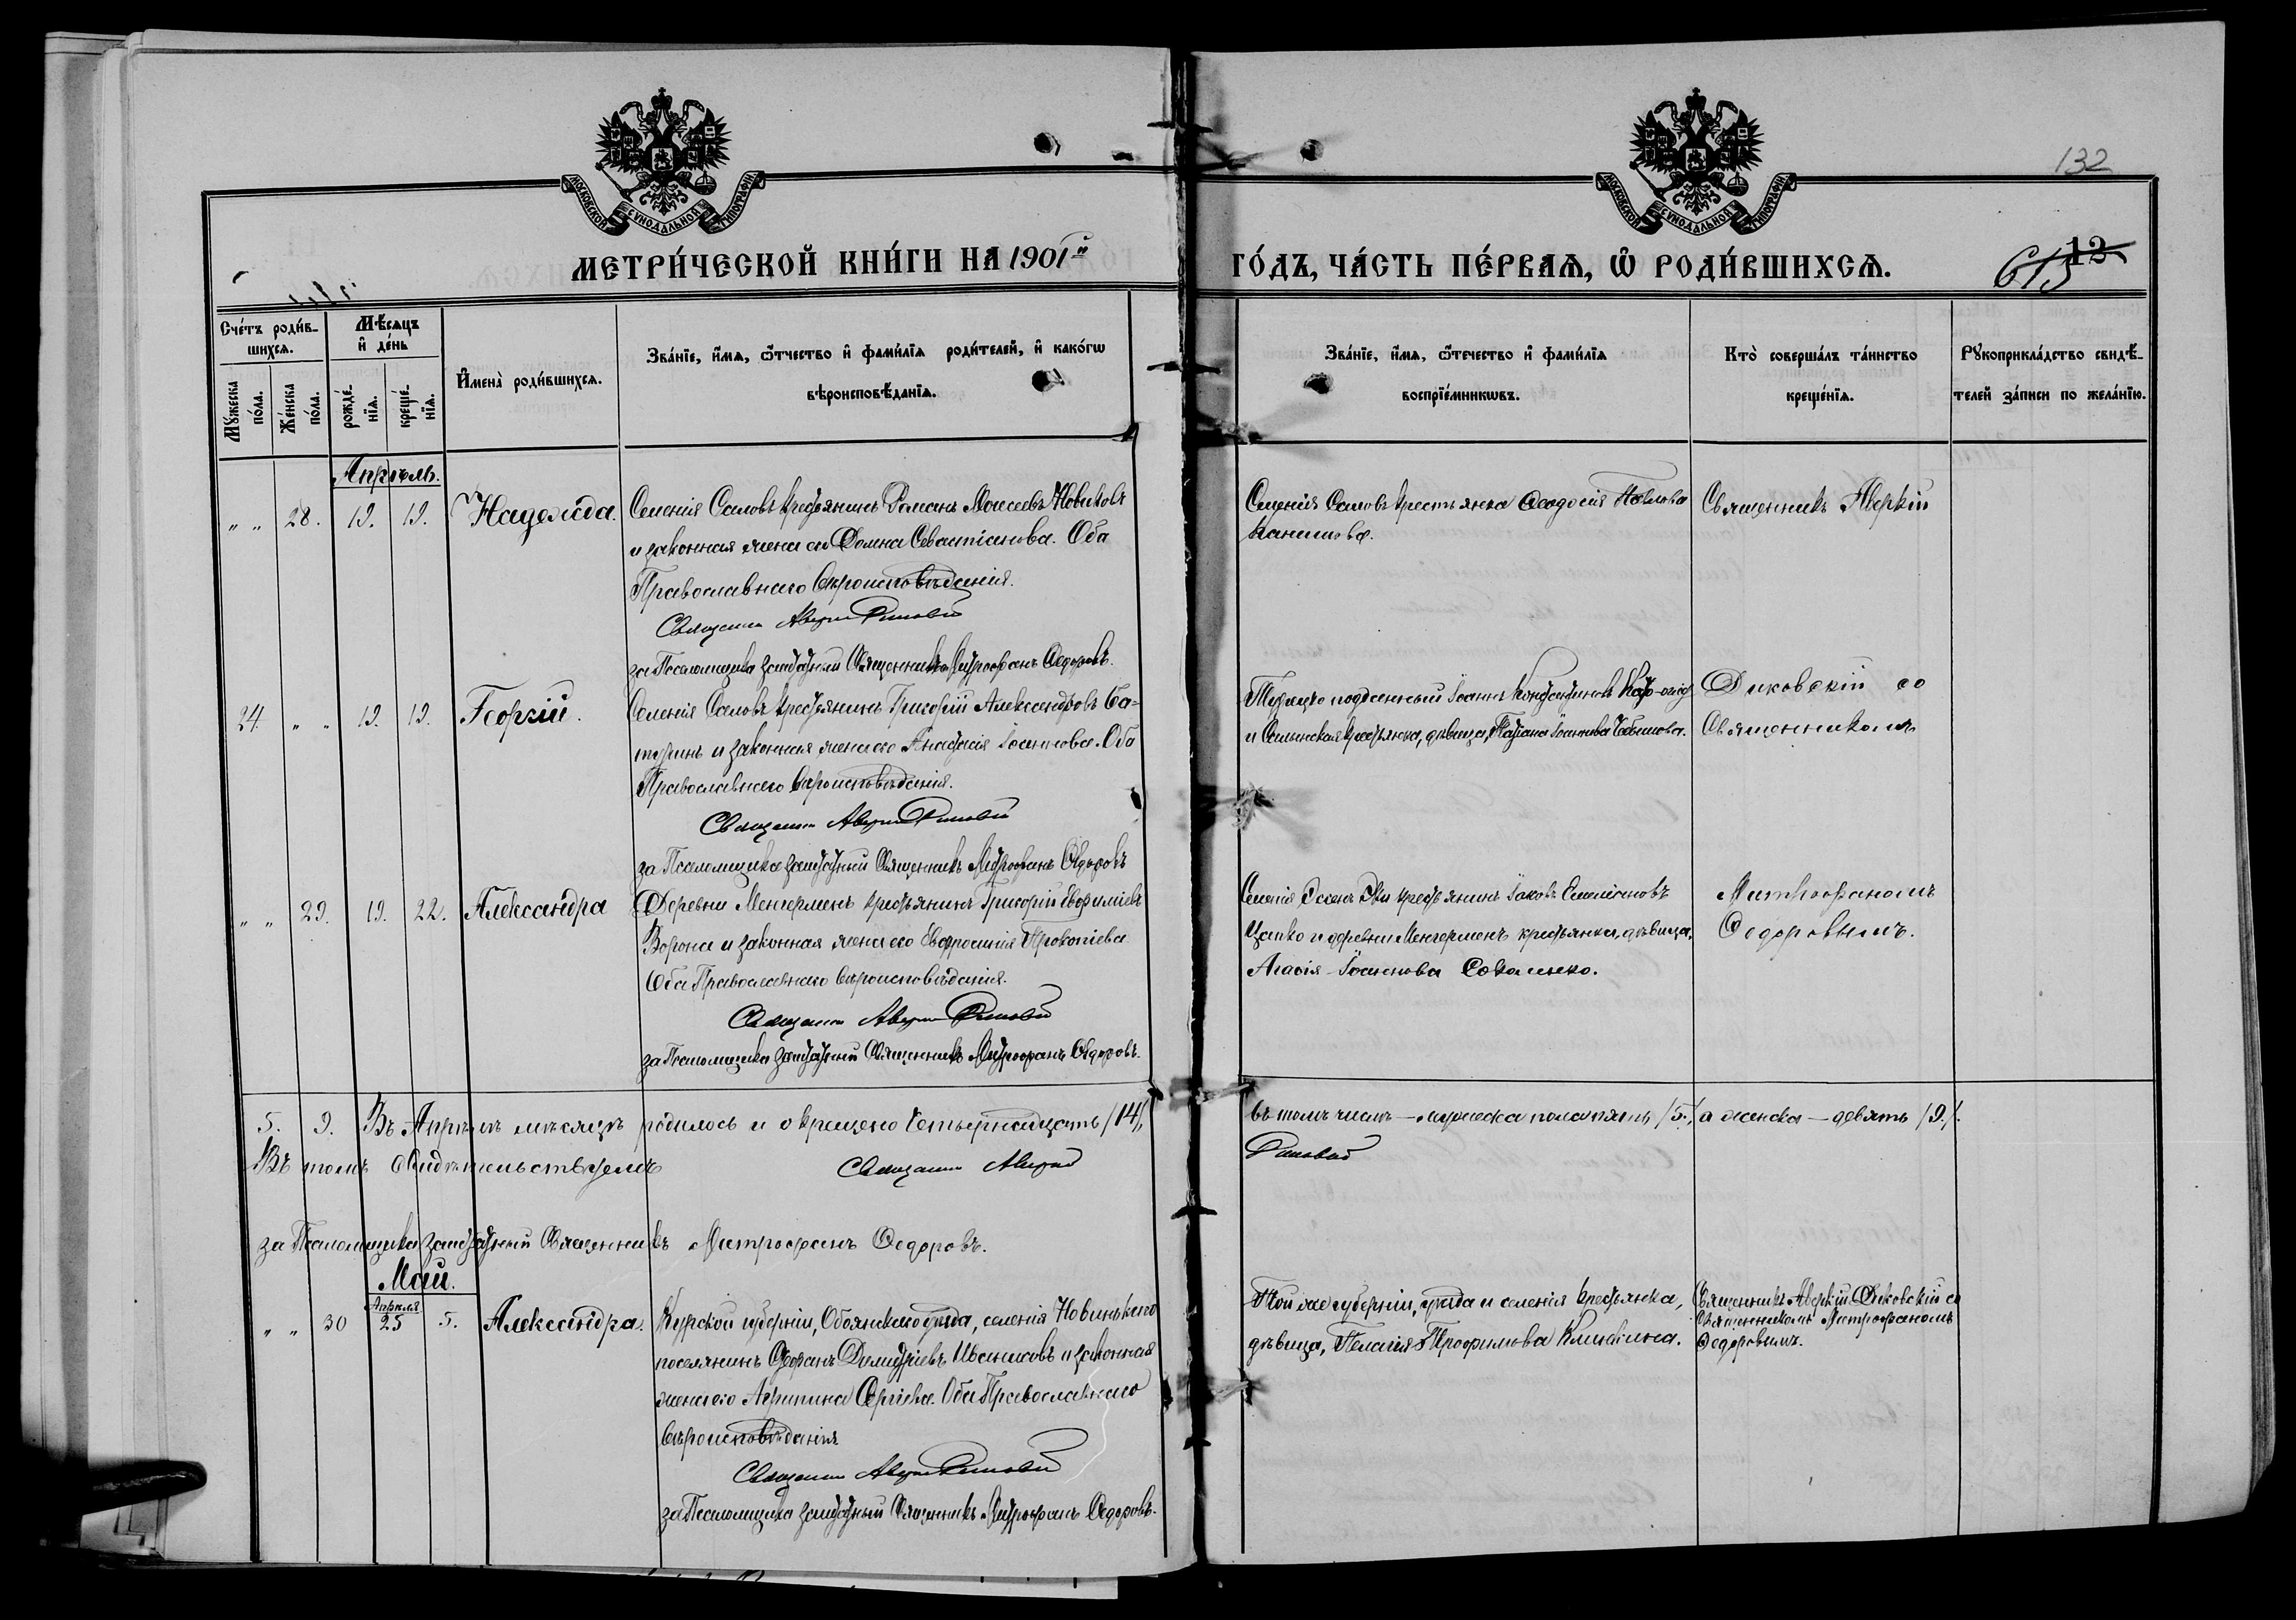 МОСКОВСКОЙ СѴНОДАЛЬНОЙ ТИПОГРАФІИ
МОСКОВСКОЙ СѴНОДАЛЬНОЙ ТИПОГРАФІИ
132
МЕТРИ́ЧЕСКОЙ КНИ́ГИ НА 1901й ГО́ДЪ, ЧА́СТЬ ПЕ́РВАѦ, Ѡ РОДИ́ВШИХСѦ.
12
615
Сче́тъ роди́в-
шихсѧ.
Мѣ́сѧцъ
и҆ де́нь
Мꙋ́жеска
по́ла.
Же́нска
по́ла.
рожде́-
нїѧ.
креще́-
нїѧ.
И҆мена̀ роди́вшихсѧ.
Зва́нїе, и҆́мѧ, ѻ҆́тчество и҆ фами́лїѧ роди́телей, и҆ како́гѡ
вѣроисповѣ́данїѧ.
Зва́нїе, и҆́мѧ, ѻ҆́течество и҆ фами́лїѧ
воспрїе́мникѡвъ.
Кто̀ соверша́лъ та́инство
креще́нїѧ.
Рꙋкоприкла́дство свидѣ́-
телей за́писи по жела́нїю.
Апрѣль.
" " 28. 19. 19. Надежда.
Селенія Саловъ крестьянинъ Романъ Моисеевъ Новиковъ
и законная жена его Домна Севастіанова. Оба
Православнаго Вѣроисповѣданія.
Священникъ Аверкій Диковскій
за Псаломщика заштатный Священникъ Митрофанъ Ѳедоровъ.
Селенія Саловъ крестьянка Ѳеодосія Павлова
Священникъ Аверкій
24 " " 19. 19. Георгій.
Селенія Саловъ крестьянинъ Григорій Александровъ Ба-
туринъ и законная жена его Анастасія Іоаннова. Оба
Православнаго Вѣроисповѣданія.
Священникъ Аверкій Диковскій
за Псаломщика заштатный Священникъ Митрофанъ Ѳедоровъ
Турецко подданный Іоаннъ Константиновъ
и крестьянка, дѣвица, Татіана Іоаннова
Диковскій со
Священникомъ
" " 29. 19. 22. Александра
Деревни Менгерменъ крестьянинъ Григорій Евѳиміевъ
Ворона и законная жена его Евфросинія Прокопіева
Оба Православнаго Вѣроисповѣданія.
Священникъ Аверкій Диковскій
за Псаломщика заштатный Священникъ Митрофанъ Ѳедоровъ.
Селенія крестьянинъ Іаковъ Емеліановъ
Цапко и деревни Менгерменъ крестьянка, дѣвица,
Агаѳія Іоаннова Соваленко.
Митрофаномъ
Ѳедоровымъ.
5. 9. Въ Апрѣлѣ мѣсяцѣ родилось и окрещено четырнадцать /14/, въ томъ числѣ — мужеска пола пять /5/, а женска — девять /9./.
Въ томъ свидѣтельствуемъ Священникъ Аверкій Диковскій
за Псаломщика заштатный Священникъ Митрофанъ Ѳедоровъ.
Май.
" " 30 Апрѣля 25 5. Александра.
Курской губерніи, Обоянскаго уѣзда, селенія Новинькаго
поселянинъ Стефанъ Димитріевъ Иванисовъ и законная
жена его Агрипина Сергіева. Оба Православнаго
Вѣроисповѣданія
Священникъ Аверкій Диковскій
за Псаломщика заштатный Священникъ Митрофанъ Ѳедоровъ.
Той же губерніи, уѣзда и селенія крестьянка,
дѣвица, Пелагія Трофимова
Священникъ Аверкій Диковскій со
Священникомъ Митрофаномъ
Ѳедоровымъ.